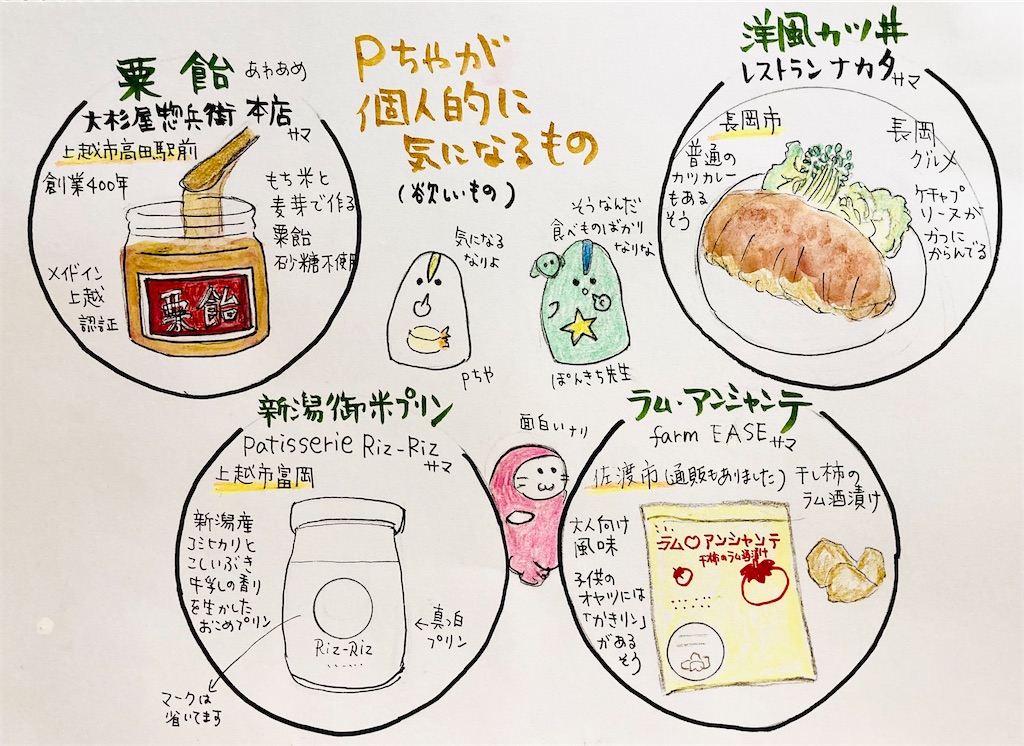 Pちゃが
個人的に
気になるもの
(欲しいもの)
粟 飴 あわあめ
大杉屋惣兵衛 本店
サマ
上越市高田駅前
創業400年
もち米と
麦芽で作る
粟飴
砂糖不使用
メイドイン
上越
認証
粟飴
洋風カツ丼
レストランナカタ
サマ
長岡市
長岡
グルメ
普通の
カツカレー
もある
そう
ケチャプ
リースが
かつに
からんでる
気になる
なりよ
Pちゃ
そうなんだ
食べものばかり
なりな
ぽんきち先生
新潟御米プリン
Patisserie Riz-Riz
サマ
上越市富岡
新潟産
コシヒカリと
こしいぶき
牛乳しの香り
を生かした
おこめプリン
←真っ白
プリン
Riz-Riz
マークは
省いてます
面白いナリ
ラム・アンシャンテ
farm EASE
サマ
佐渡市(通販もありました)
干し柿の
ラム酒漬け
大人向け
風味
子供の
オヤツには
「かきリン」
がある
そう
ラム♡アンシャンテ
干柿のラム酒漬け